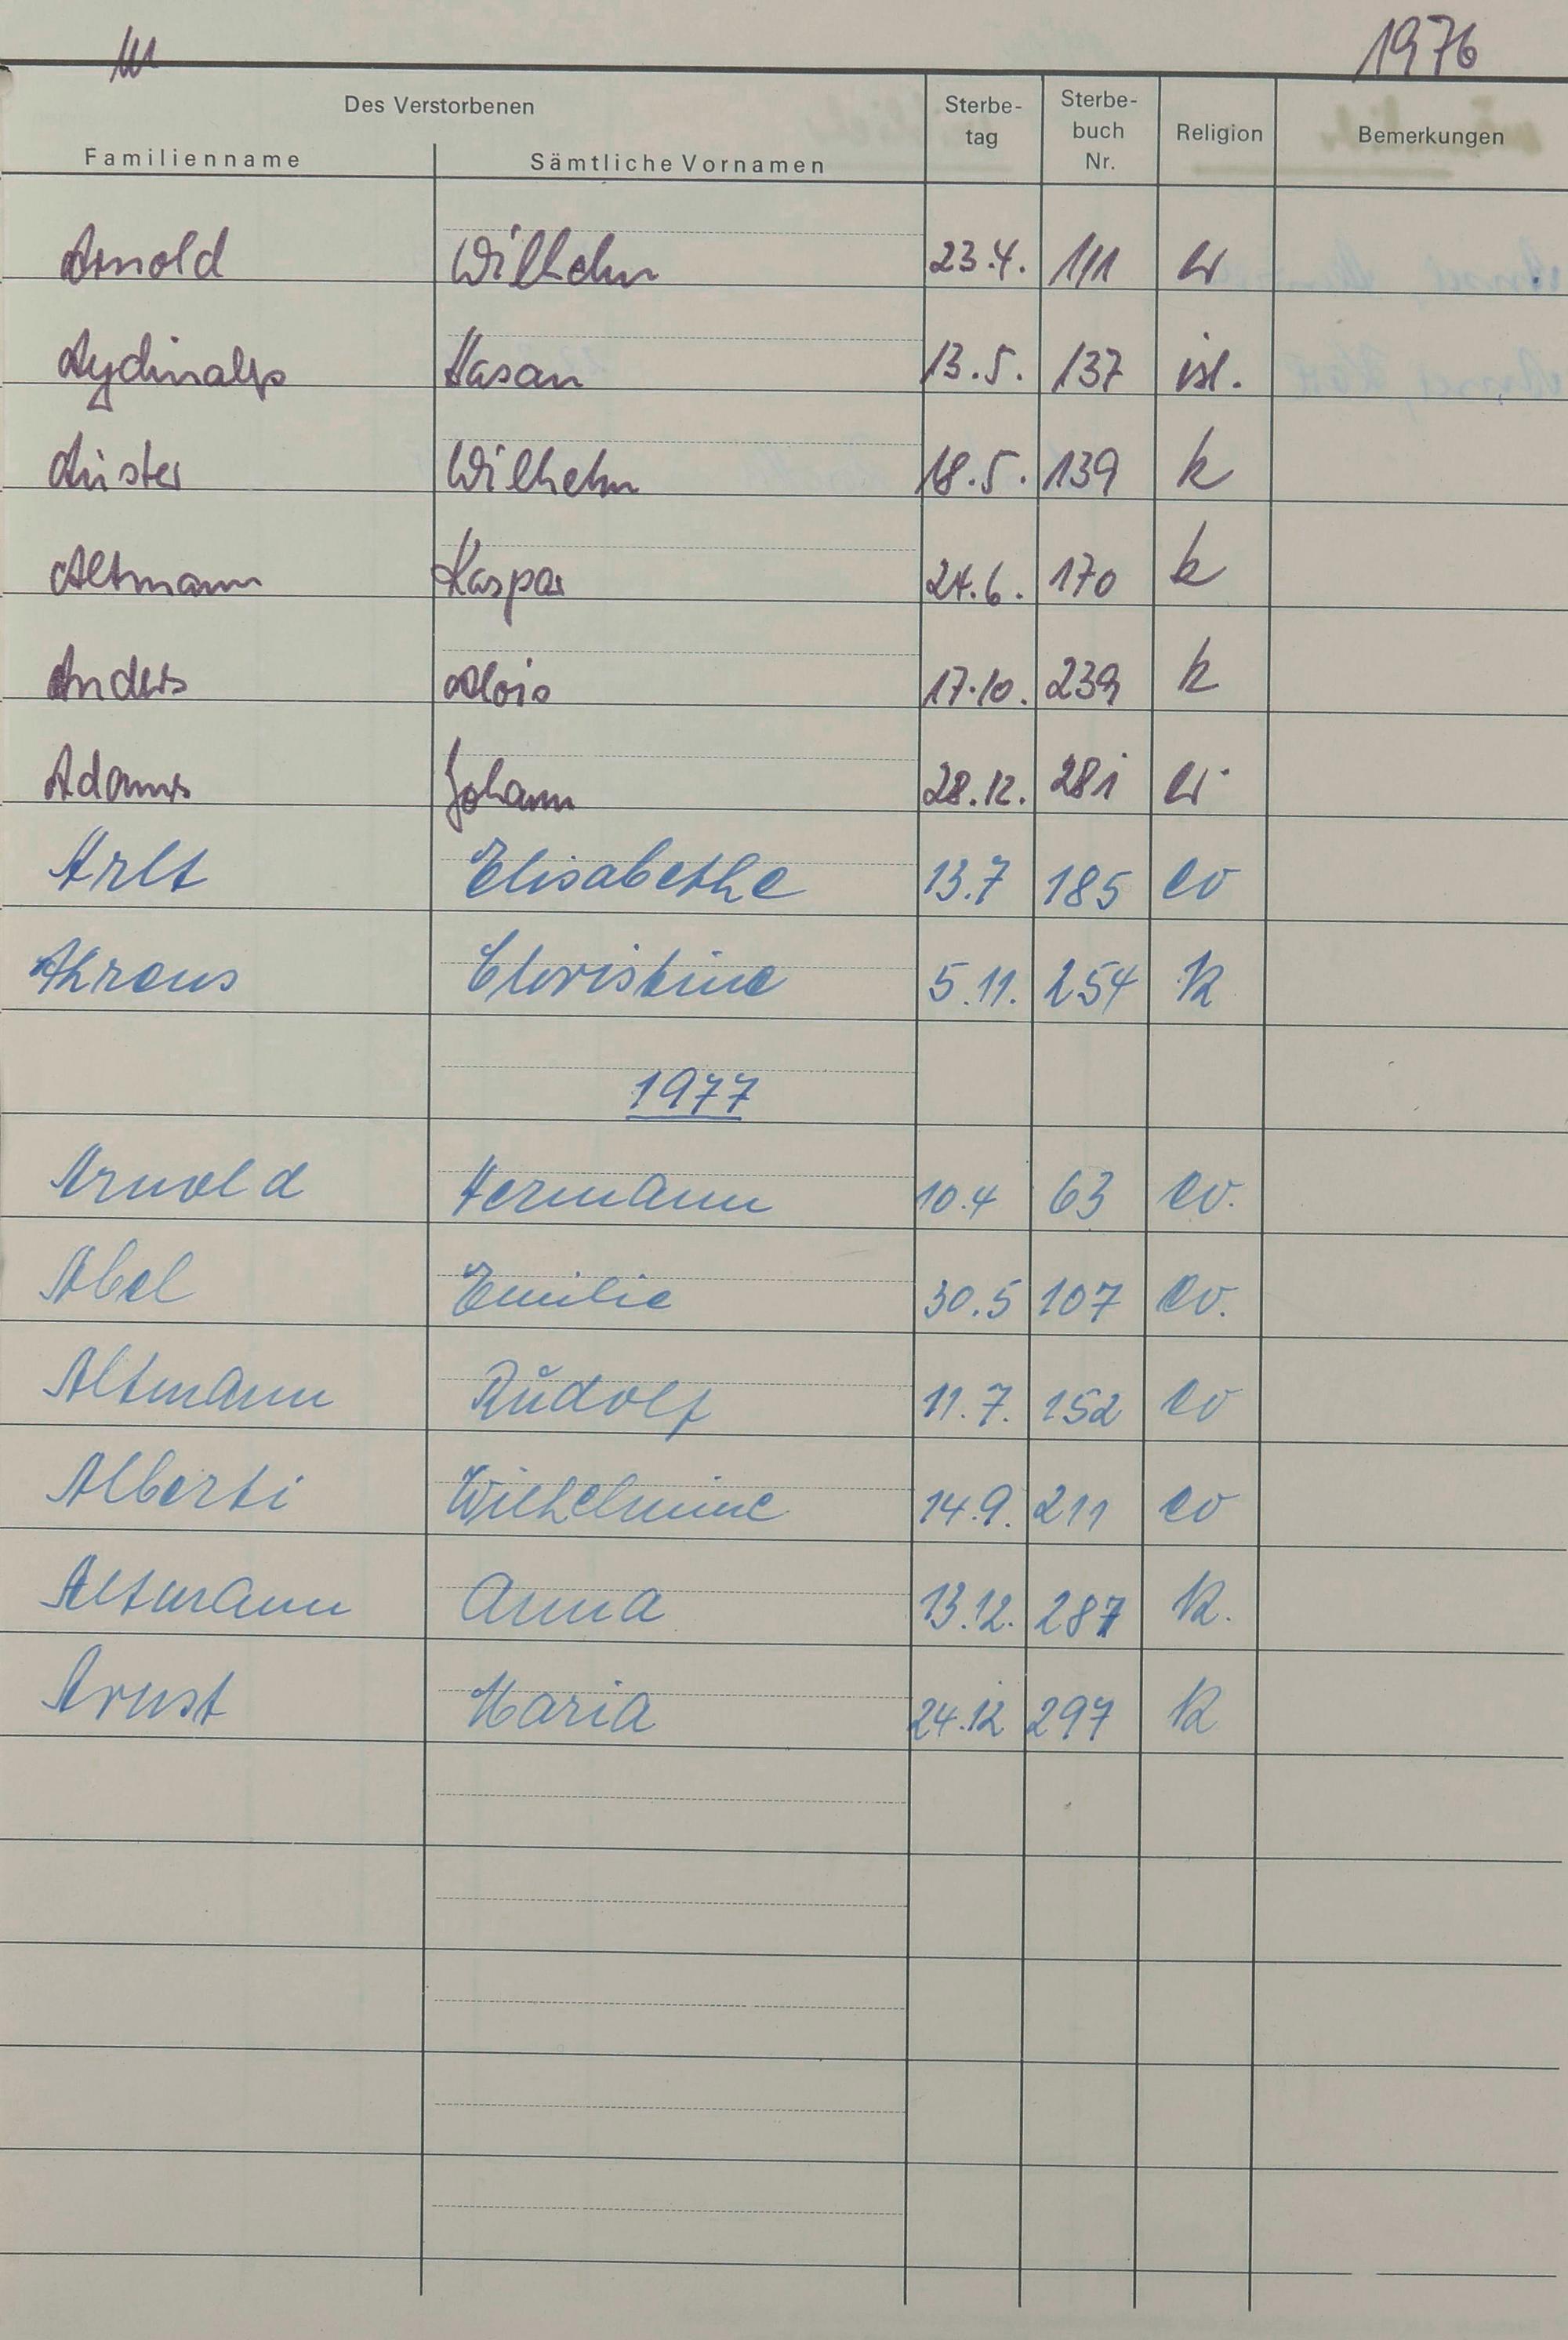 1976
Des Verstorbenen
Familienname Sämtliche Vornamen Sterbe-tag Sterbe-buch Nr. Religion Bemerkungen
Arnold Wilhelm 23.4. 111 ev
Aydinalp Hasan 13.5. 137 isl.
Auster Wilhelm 18.5. 139 k
Altmann Kaspar 24.6. 170 k
Anders Alois 17.10. 239 k
Adams Johann 28.12. 281 ev
Arlt Elisabethe 13.7 185 ev
Ahrens Christine 5.11. 254 k
1977
Arnold Hermann 10.4 63 ev.
Abel Emilie 30.5 107 ev.
Altmann Rudolf 11.7. 152 ev
Alberti Wilhelmine 14.9. 211 ev
Altmann Anna 13.12. 287 k.
Arnst Maria 24.12 297 k